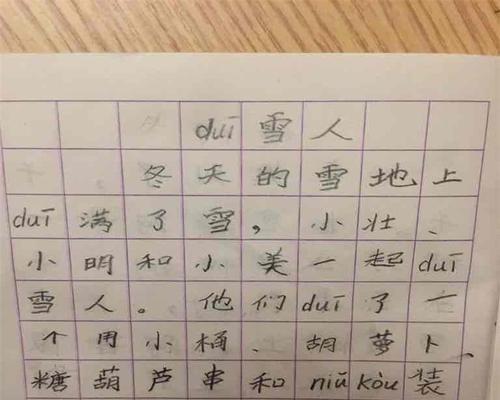 duī雪人
冬天的雪地上
duī满了雪，小壮、
小明和小美一起duī
雪人。他们duī了一
个用小桶、胡萝卜、
糖葫芦串和niǔ kòu装